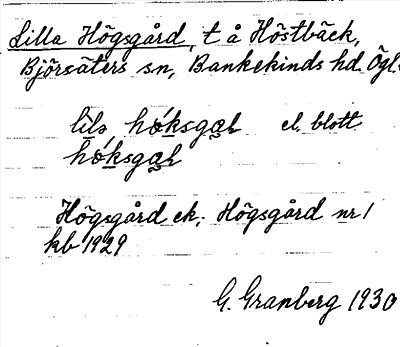 Lilla Högsgård, t å Höstbäck,
Björsäters sn, Bankekinds hd Ögl.
el. blott
Högsgård ek; Högsgård nr 1
kb 1929
G. Granberg 1930